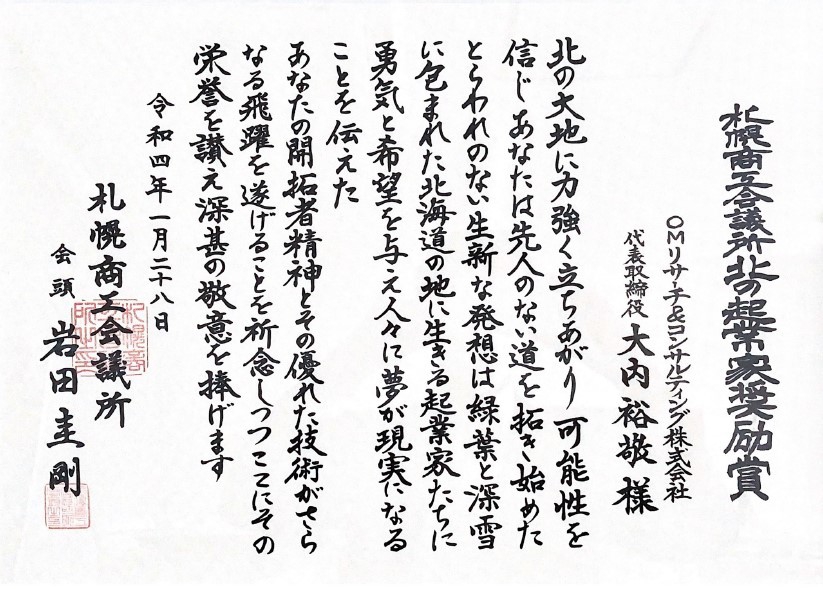 札幌商工会議所北の起業家奨励賞
OMリサーチ&コンサルティング株式会社
代表取締役 大内裕敬 様
北の大地に力強く立ちあがり 可能性を
信じあなたは先人のない道を拓き始めた
とらわれのない生新な発想は緑葉と深雪
に包まれた北海道の地に生きる起業家たちに
勇気と希望を与え人々に夢が現実になる
ことを伝えた
あなたの開拓者精神とその優れた技術がさら
なる飛躍を遂げることを祈念しつつここにその
栄誉を讃え深甚の敬意を捧げます
令和四年一月二十八日
札幌商工会議所
会頭 岩田圭剛